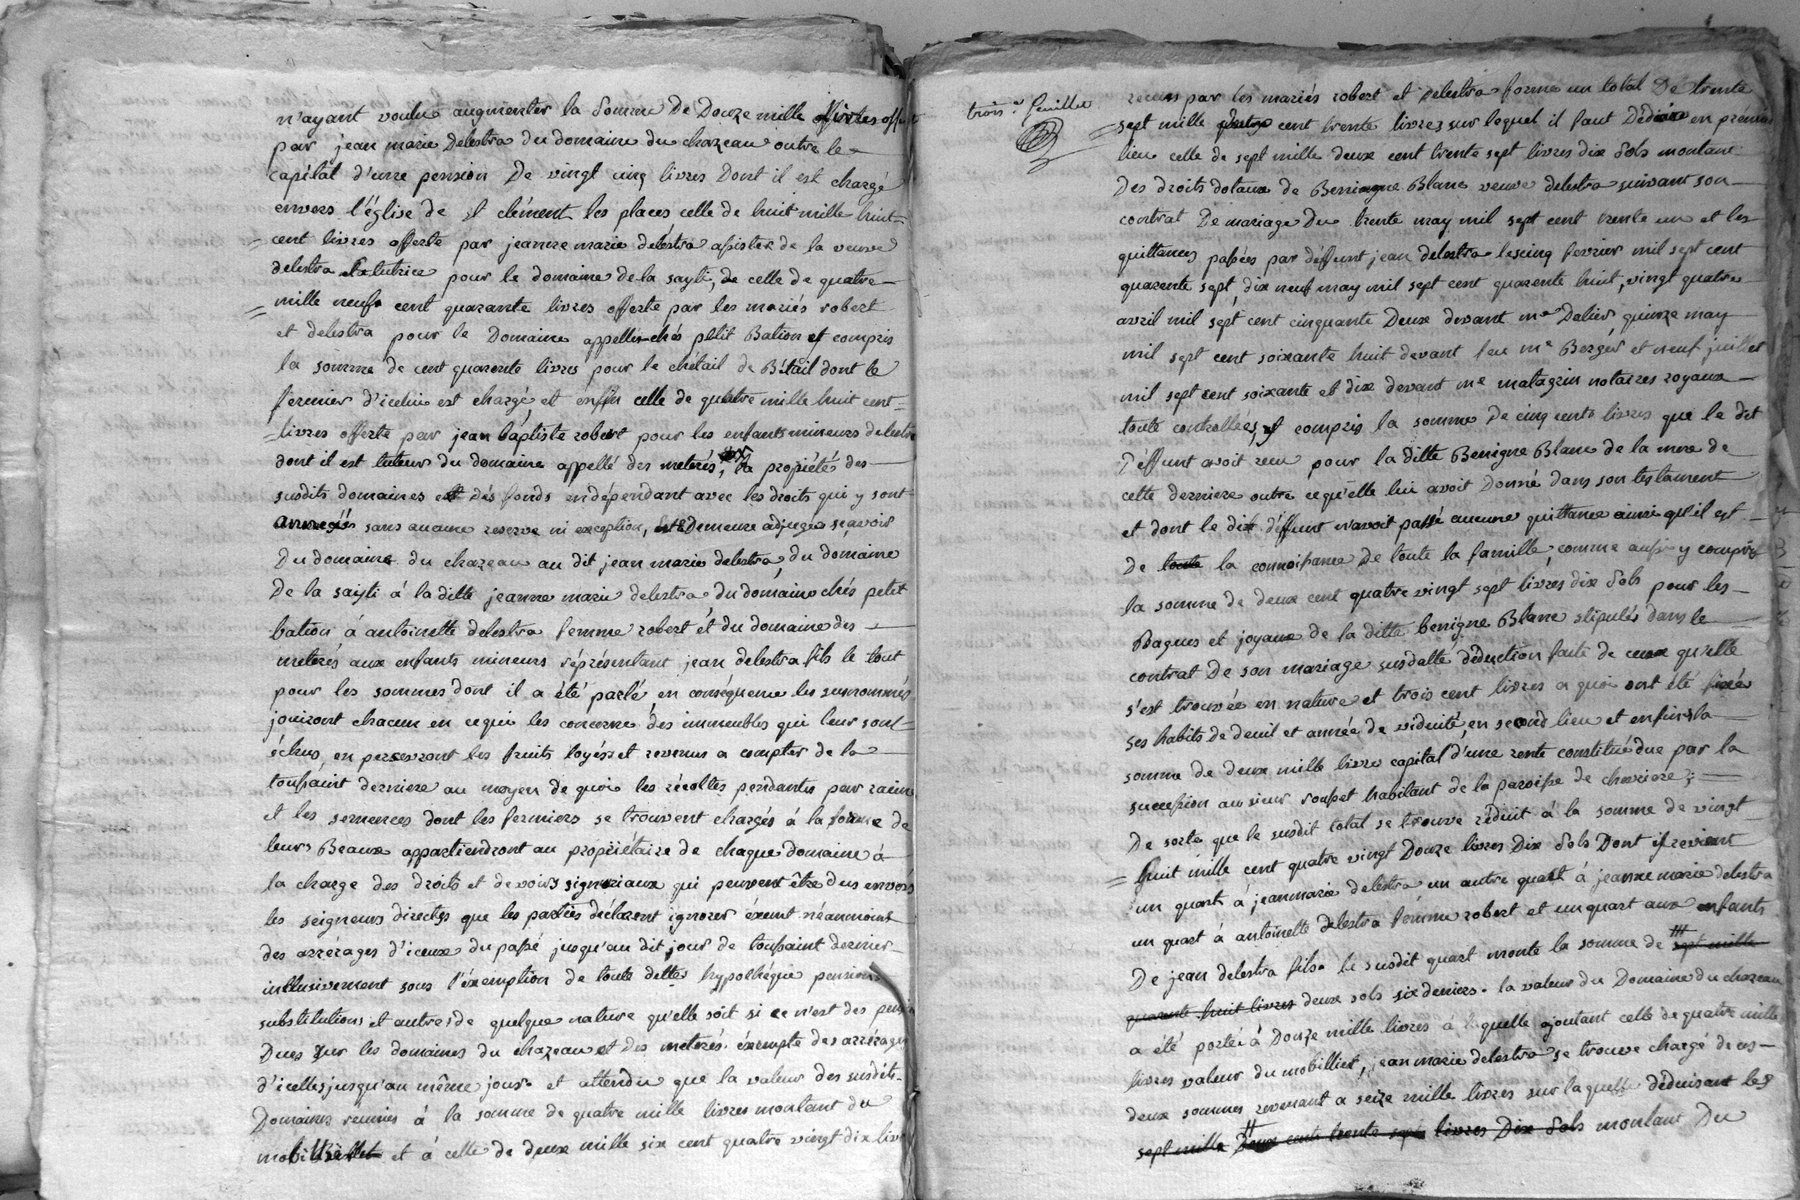 n'ayant voulu augmenter la somme De Douze mille livres
par jean marie Delestra du domaine du chazeau outre le
capital d'une pension De vingt cinq livres Dont il est chargé
envers l'église de st clément les places celle de huit mille huit
cent livres offerte par jeanne marie delestra assistée de la veuve
delestra sa tutrice pour le domaine de la sayti, de celle de quatre
mille neuf cent quarante livres offerte par les mariés robert
et delestra pour le Domaine appellé chés petit Bation y compris
la somme de cent quarente livres pour le chétail de Bétail dont le
fermier d'icelui est chargé, et enfin celle de quattre mille huit cent
livres offerte par jean baptiste robert pour les enfants mineurs delestra
dont il est tuteur du domaine appellé des meterés, la propiétés des
susdits domaines et dés fonds endépendant avec les droits qui y sont
annexés sans aucune reserve ni exception, est Demeuré adjugée sçavoir
Du domaine du chazeau au dit jean marie delestra, du domaine
De la sayti à la ditte jeanne marie delestra du domaine chés petit
bation à antoinette delestra femme robert et du domaine des
meterés aux enfants mineurs réprésentant jean delestra fils le tout
pour les sommes dont il a été parlé en conséquence les susnommés
joüiront chacun en ce qui les concerne des immeubles qui leur sont
échus, en percevront les fruits loyés et revenus a compter de la
toussaint derniere au moyen de quoi les récoltes pendantes par racine
et les semences dont les fermiers se trouvent chargés à la forme de
leurs Beaux appartiendront au propriétaire de chaque domaine à
la charge des droits et devoirs signeriaux qui peuvent être dus envers
les seigneurs directes que les parties déclarent ignorer éxemt néanmoint
des arrérages d'iceux du passé jusqu'au dit jour de toussaint dernier
inclusivement sous l'éxemption de toute dette hypothéque pensions
substitutions et autres de quelque nature qu'elle soit si ce n'est des
Dues sur les domaines du chazeau et des meterés éxempte des arrérages
d'icelles jusqu'au même jour. et attendu que la valeur des susdits
Domaines réunies à la somme de quatre mille livres montant du
mobillier et à celle de deux mille six cent quatre vingt dix livres
trois.e feuille
recus par les mariés robert et delestra forme un total De trente
sept mille cent trente livres sur lequel il faut Déduire en premier
lieu celle de sept mille deux cent trente sept livres dix sols montant
Des droits dotaux de Benigne Blanc veuve delestra suivant son
contrat De mariage Du trente may mil sept cent trente un et les
quittances passées par déffunt jean delestra les cinq fevrier mil sept cent
quarente sept, dix neuf may mil sept cent quarente huit, vingt quatre
avril mil sept cent cinquante Deux devant me Dalier, quinze may
mil sept cent soixante huit devant feu me Berger et neuf juillet
mil sept cent soixante et dix devant me matagrin notaires royaux
toute controllées, y compris la somme de cinq cents livres que le dit
Déffunt avoit recu pour la ditte Benigne Blanc de la mere de
cette derniere outre ce qu'elle lui avoit Donné dans son testament
et dont le dit déffunt n'avoit passé aucune quittance ainsi qu'il est
De toute la connoissance De toute la famille, comme aussi y compris
la somme de deux cent quatre vingt sept livres dix sols pour les
Bagues et joyaux de la ditte benigne Blanc stipulés dans le
contrat De son mariage susdatté déduction faite de ceux qu'elle
s'est trouvée en nature et trois cent livres a quoi ont été fixés
ses habits De deuil et année de viduité, en second lieu et enfin la
somme de deux mille livre capital d'une rente constituée due par la
succession au sieur rousset habitant de la paroisse de chevriere;
De sorte que le susdit total se trouve réduit à la somme de vingt
huit mille cent quatre vingt Douze livres Dix sols Dont il revient
un quart à jean marie delestra un autre quart à jeanne marie delestra
un quart à antoinette delestra femme robert et un quart aux enfants
De jean delestra fils. le susdit quart monte la somme de sept mille
quarente huit livres deux sols six deniers. la valeur du Domaine du chazeau
a été portée à Douze mille livres à laquelle ajoutant celle de quatre mille
livres valeur du mobillier, jean marie delestra se trouve chargé de ces
deux sommes revenant a seize mille livres sur laquelle déduisant les
sept mille Deux cents trente sept livres Dix sols montant Du